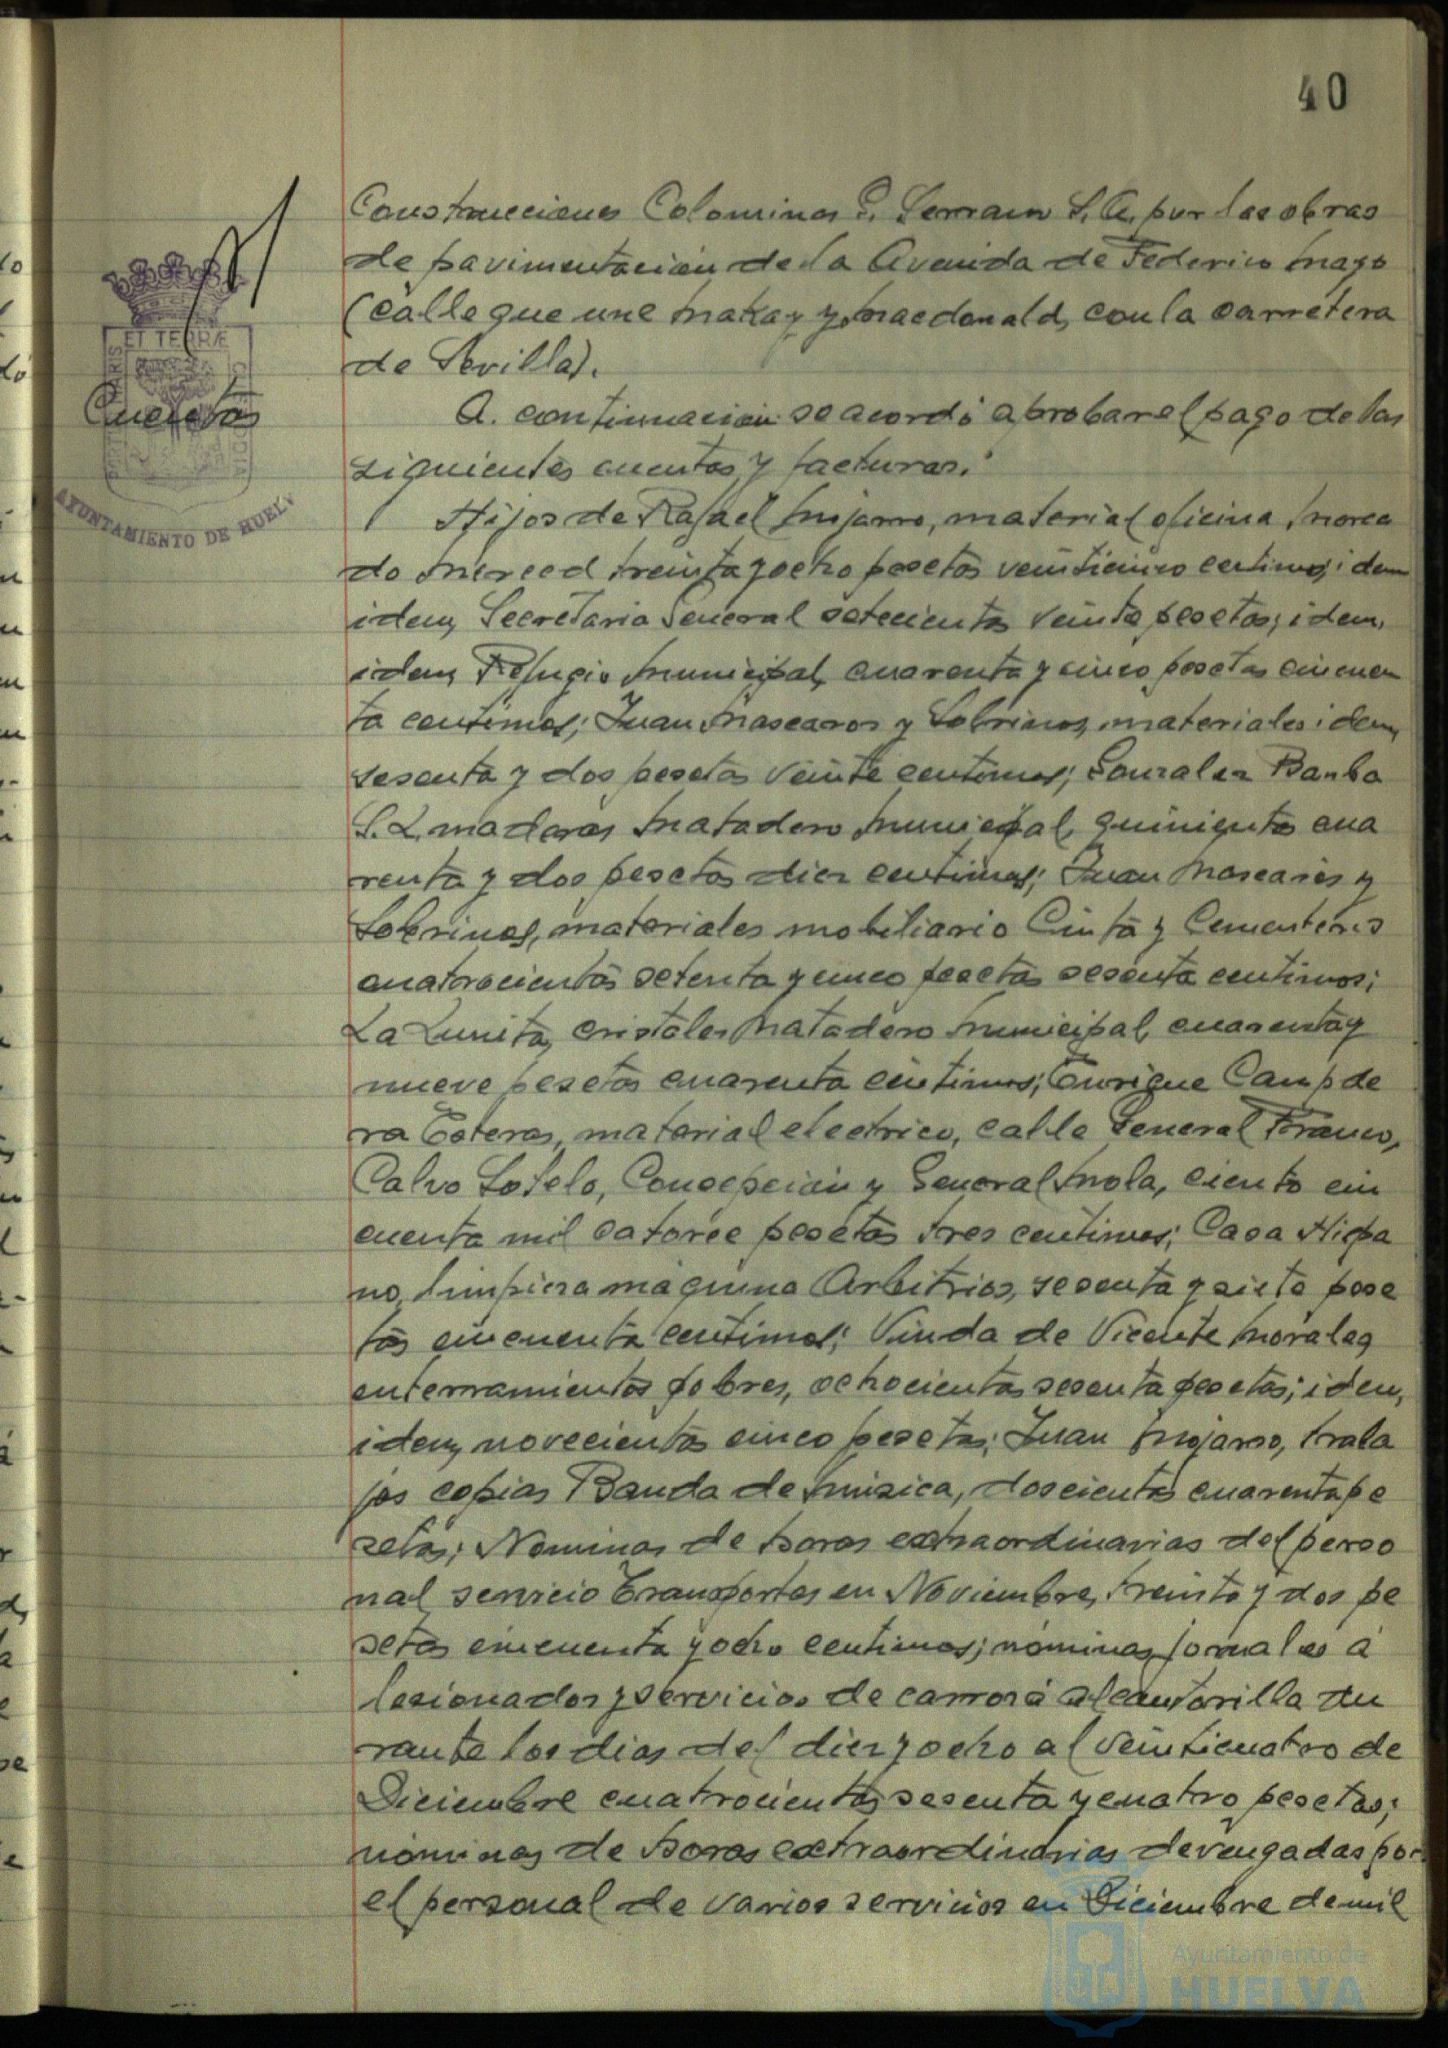 40
Construcciones Colominas G. Serrano S.A. por las obras
de pavimentación de la Avenida de Federico Mayo
(calle que une Makay y Macdonald, con la carretera
de Sevilla).
Cuentas
A. continuacion se acordó aprobar el pago de las
siguientes cuentas y facturas:
Hijos de Rafael Mojarro, material oficina Merca
do Merced treinta y ocho pesetas veinticinco centimos; idem
idem, Secretaria General setecientas veinte pesetas; idem,
idem, Refugio Municipal, cuarenta y cinco pesetas cincuen
ta centimos; Juan Mascaros y Sobrinos, materiales idem,
sesenta y dos pesetas veinte centimos; Gonzalez Barba
S.L. maderas Matadero Municipal, quinientas cua
renta y dos pesetas diez centimos; Juan Mascarós y
Sobrinos, materiales mobiliario Cinta y Cementerio
cuatrocientas setenta y cinco pesetas sesenta centimos;
La Lunita, cristales Matadero Municipal, cuarenta y
nueve pesetas cuarenta centimos; Enrique Campde
ra Esteras, material electrico, calle General Franco,
Calvo Sotelo, Concepción y General Mola, ciento cin
cuenta mil catorce pesetas tres centimos; Casa Hispa
no, limpieza máquina Arbitrios, sesenta y siete pese
tas cincuenta centimos; Viuda de Vicente Morales,
enterramientos pobres, ochocientas sesenta pesetas; idem,
idem, novecientas cinco pesetas; Juan Mojarro, traba
jos copias Banda de Música, doscientas cuarenta pe
setas; Nominas de horas extraordinarias del perso
nal servicio Transportes en Noviembre, treinta y dos pe
setas cincuenta y ocho centimos; nóminas jornales á
lesionados y servicios de carros á alcantarilla du
rante los dias del diez y ocho al veinticuatro de
Diciembre cuatrocientas sesenta y cuatro pesetas;
nóminas de horas extraordinarias devengadas por
el personal de varios servicios en Diciembre de mil
ET TERRÆ
AYUNTAMIENTO DE HUELVA
Ayuntamiento de
HUELVA